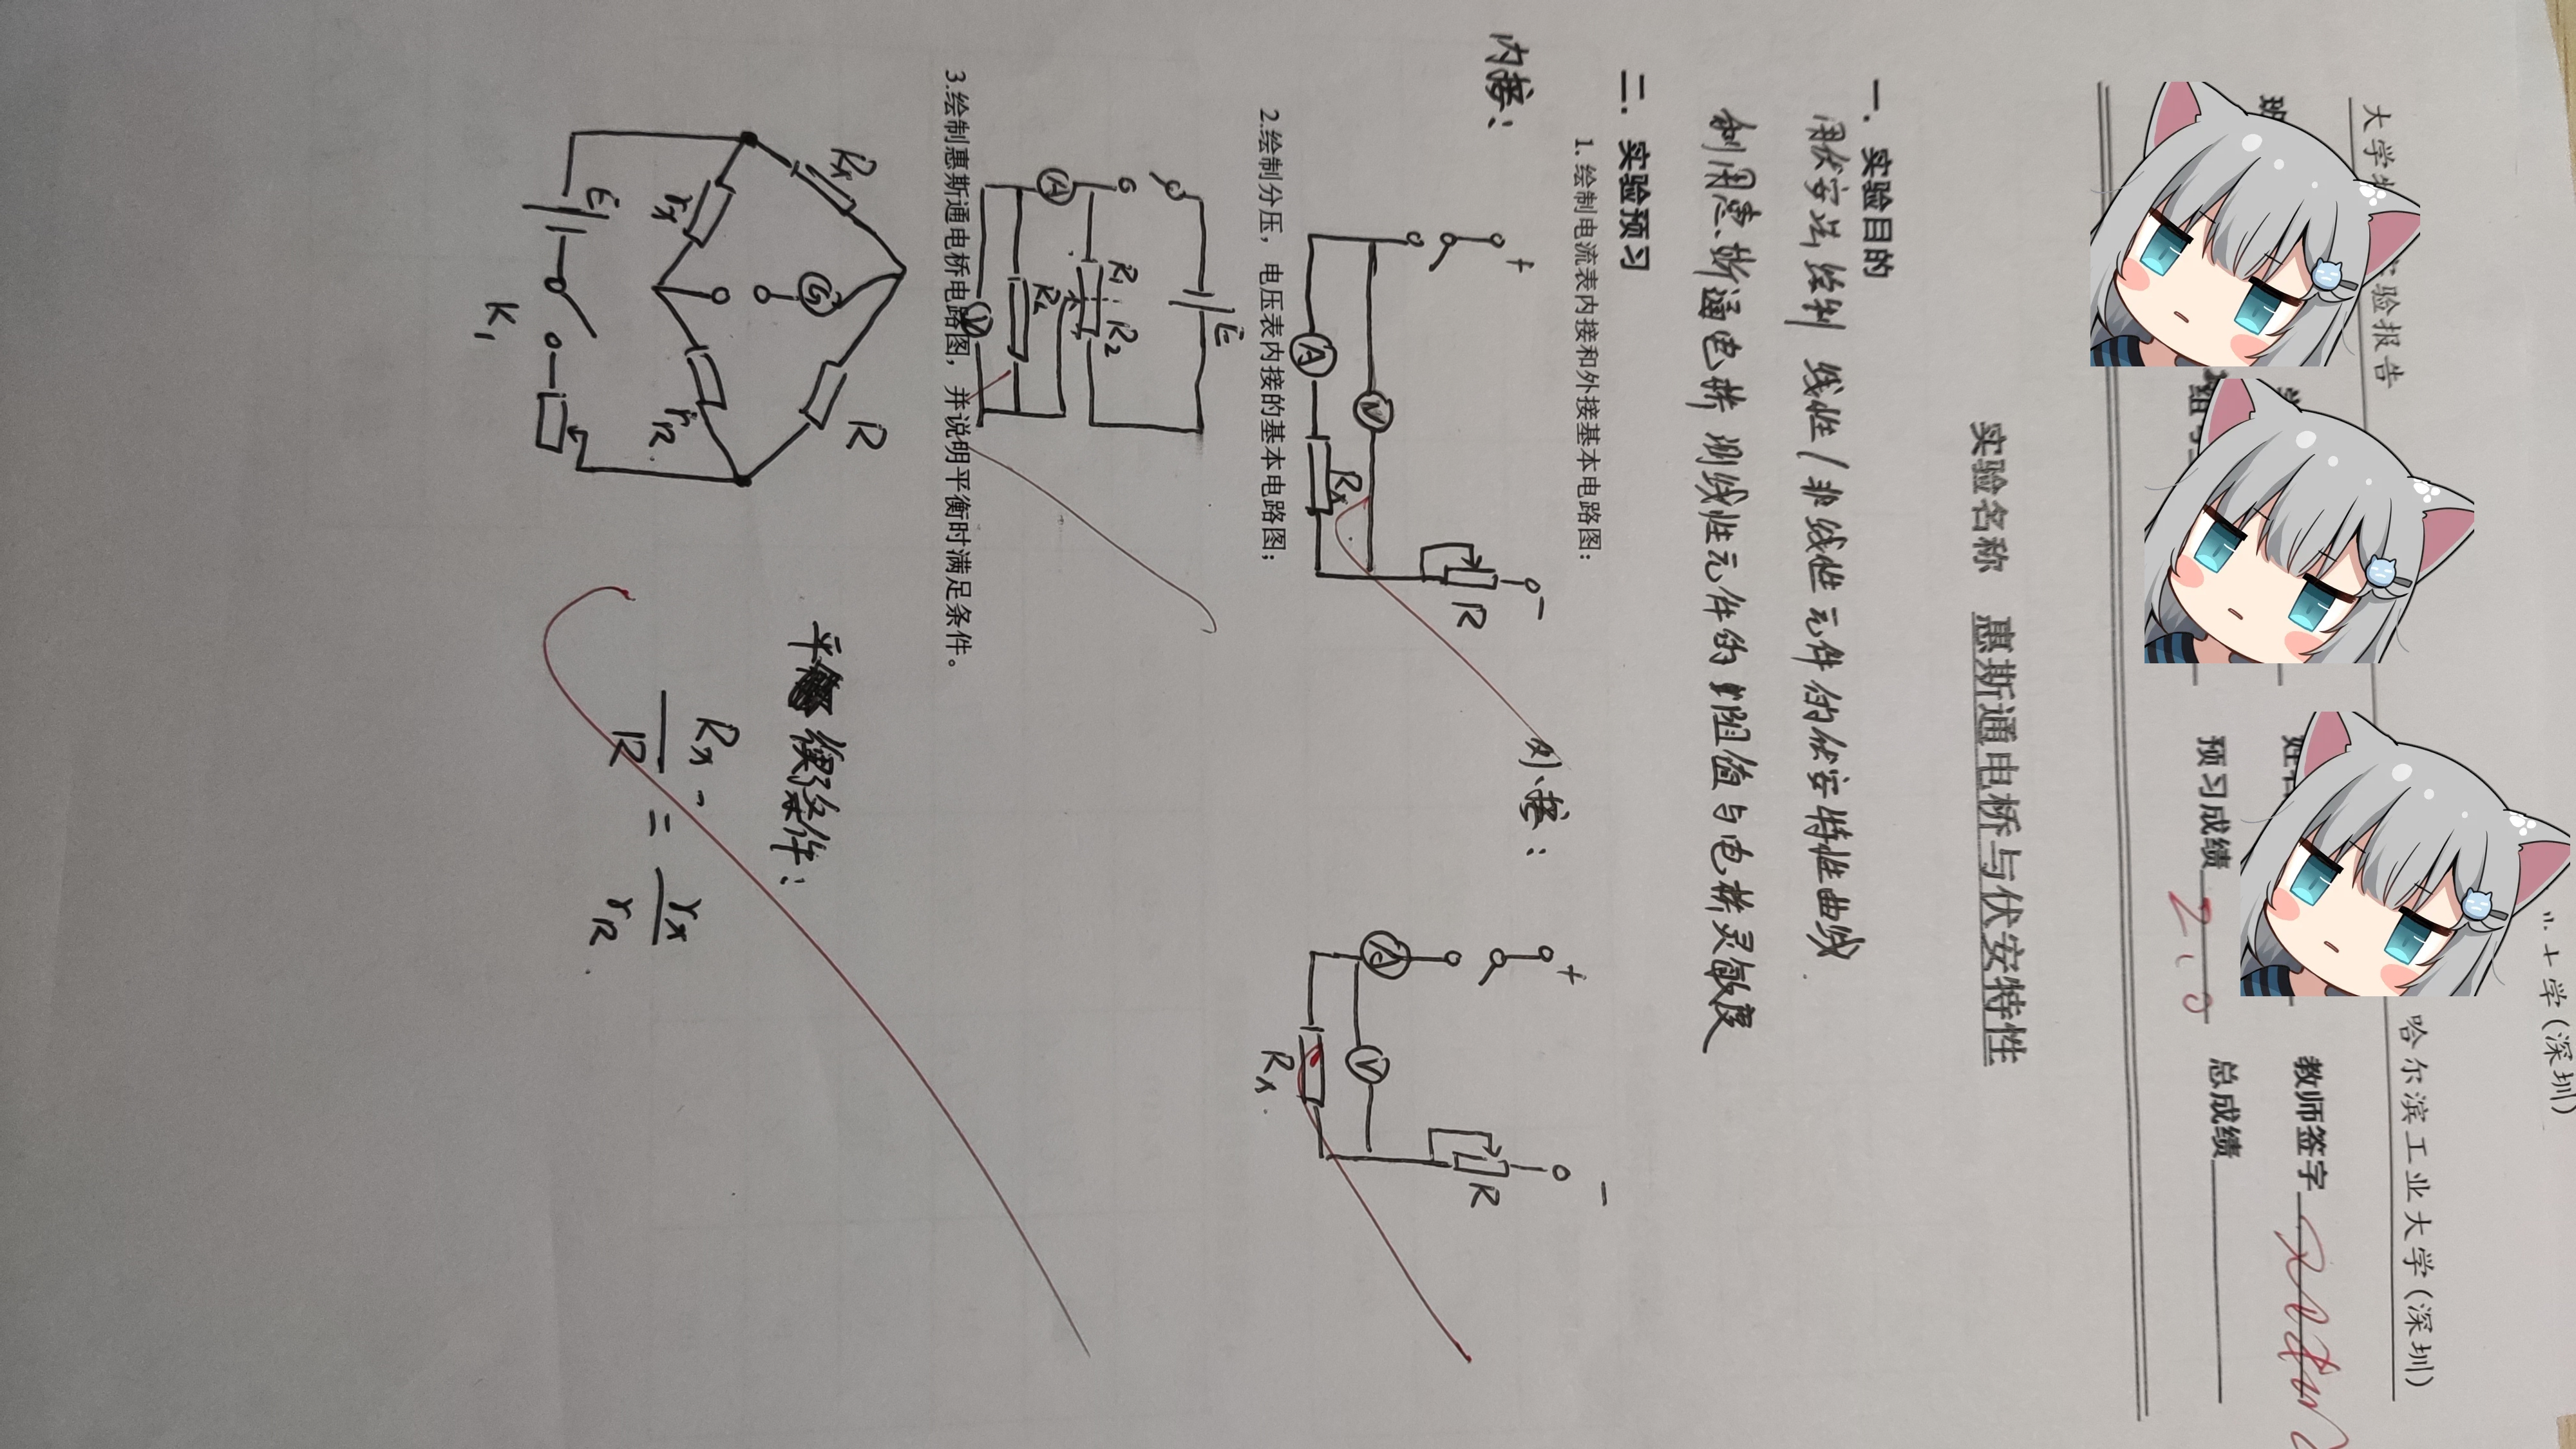 大学(深圳)
大学物 实验报告 哈尔滨工业大学(深圳)
班 姓 教师签字
组 预习成绩 2.0 总成绩
实验名称 惠斯通电桥与伏安特性
一. 实验目的
用伏安法绘制 线性/非线性元件的伏安特性曲线
利用惠斯通电桥 测线性元件的阻值与电桥灵敏度
二. 实验预习
1. 绘制电流表内接和外接基本电路图:
内接: 外接:
+ V A Rx R −
+ A V Rx R −
2.绘制分压,电压表内接的基本电路图;
E
R1 R2
A
V
3.绘制惠斯通电桥电路图,并说明平衡时满足条件。
Rx R
G
rx rR
E
K1
平衡条件:
Rx/R = rx/rR